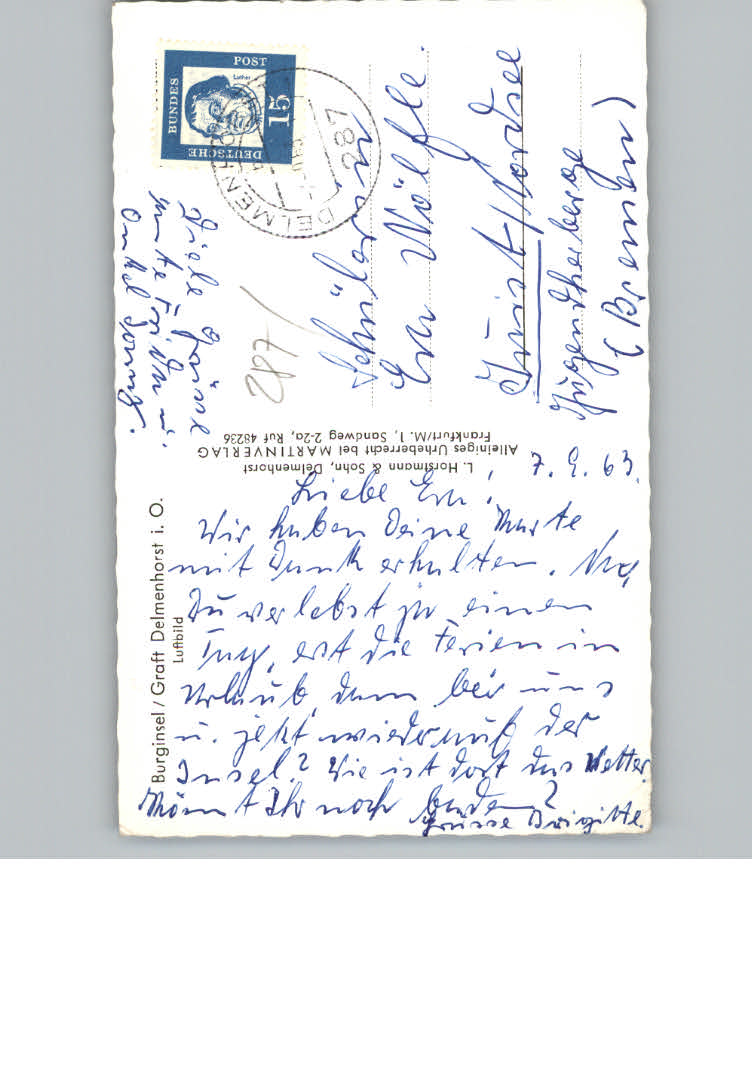 7. 9. 63.
Liebe Eva!
Wir haben Deine Karte
mit Dank erhalten. Na,
Du verlebst ja einen
Tag, erst die Ferien in
Urlaub, dann bei uns
u. jetzt wieder auf der
Insel? Wie ist dort das Wetter.
Könnt Ihr noch baden?
Grüsse Brigitte.
Viele Grüsse
Tante Frida u.
Onkel
Schülerin
Eva Wölfle.
Juist/Nordsee
Jugendherberge
(Bremen)
287/
DEUTSCHE BUNDES POST
Luther
15
287
DELMENHORST
Burginsel / Graft Delmenhorst i. O.
Luftbild
L. Horstmann & Sohn, Delmenhorst
Alleiniges Urheberrecht bei MARTINVERLAG
Frankfurt/M. 1, Sandweg 2-2a, Ruf 48236